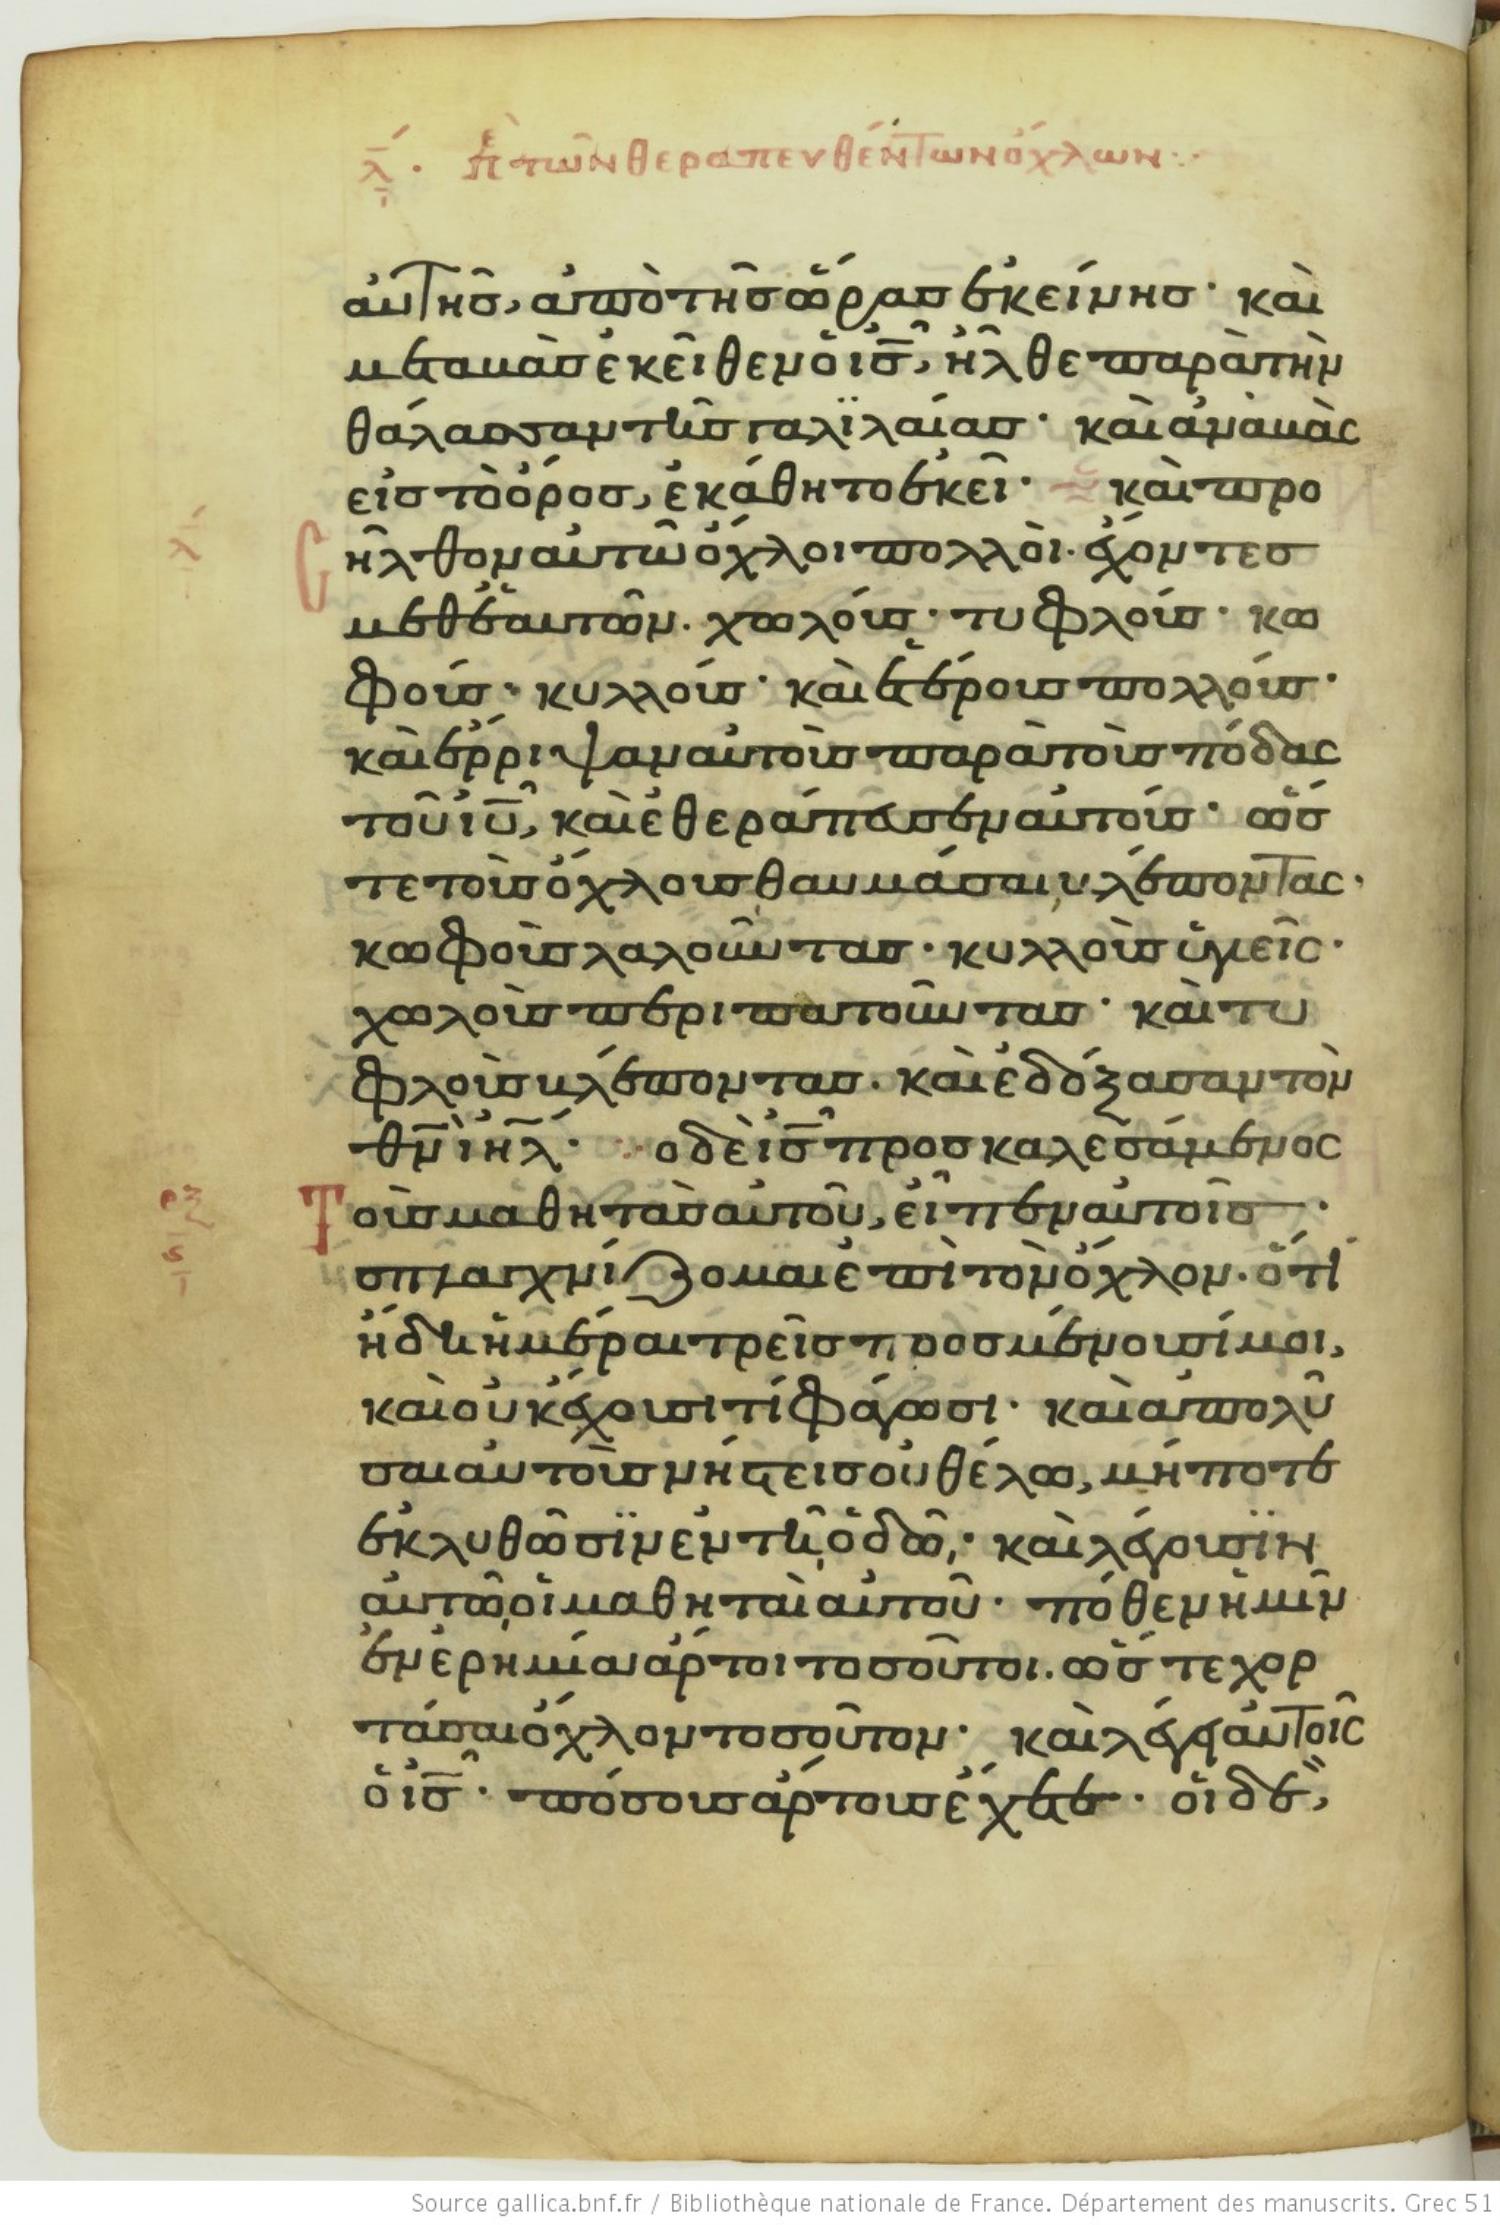 λ. πε τῶν θεραπευθέντων ὄχλων
αὐτῆς, ἀπὸ τῆς ὥρας ἐκείνης· καὶ
μεταβὰς ἐκεῖθεν ὁ ις̅, ἦλθε παρὰ τὴν
θάλασσαν τῆς γαλϊλαίας· καὶ ἀναβὰς
εἰς τὸ ὄρος, ἐκάθητο ἐκεῖ· καὶ προ
λ ῆλθον αὐτῶ ὄχλοι πολλοὶ· ἔχοντες
μεθ' ἑαυτῶν. χωλούς· τυφλούς· κω
φούς· κυλλούς· καὶ ἑτέρους πολλούς·
καὶ ἔρριψαν αὐτοὺς παρὰ τοὺς πόδας
τοῦ ιυ̅, καὶ ἐθεράπευσεν αὐτούς· ὥσ
τε τοὺς ὄχλους θαυμάσαι, βλέποντας·
κωφοὺς λαλοῦντας· κυλλοὺς ὑγιεῖς·
χωλοὺς περιπατοῦντας· καὶ τυ
φλοὺς βλέποντας. καὶ ἐδόξασαν τὸν
θν̅ ιηλ̅· ο δὲ ις̅ προσκαλεσάμενος
Τοὺς μαθητὰς αὐτοῦ, εἶπεν αὐτοῖς·
σπλαγχνίζομαι ἐπὶ τὸν ὄχλον· ὅτι
ἤδη ἡμέραι τρεῖς προσμένουσί μοι,
καὶ οὐκ ἔχουσι τί φάγωσι· καὶ ἀπολῦ
σαι αὐτοὺς νήστεις οὐ θέλω, μήποτε
ἐκλυθῶσϊν ἐν τῆ, ὁδῶ,· καὶ λέγουσϊν
αὐτῶ, οἱ μαθηταὶ αὐτοῦ· πόθεν ἡμῖν
ἐν ἐρημία ἄρτοι τοσοῦτοι. ὥστε χορ
τάσαι ὄχλον τοσοῦτον· καὶ λέγει αὐτοῖς
ὁ ις̅· πόσους ἄρτους ἔχετε· οἱ δὲ,
Source gallica.bnf.fr / Bibliothèque nationale de France. Département des manuscrits. Grec 51